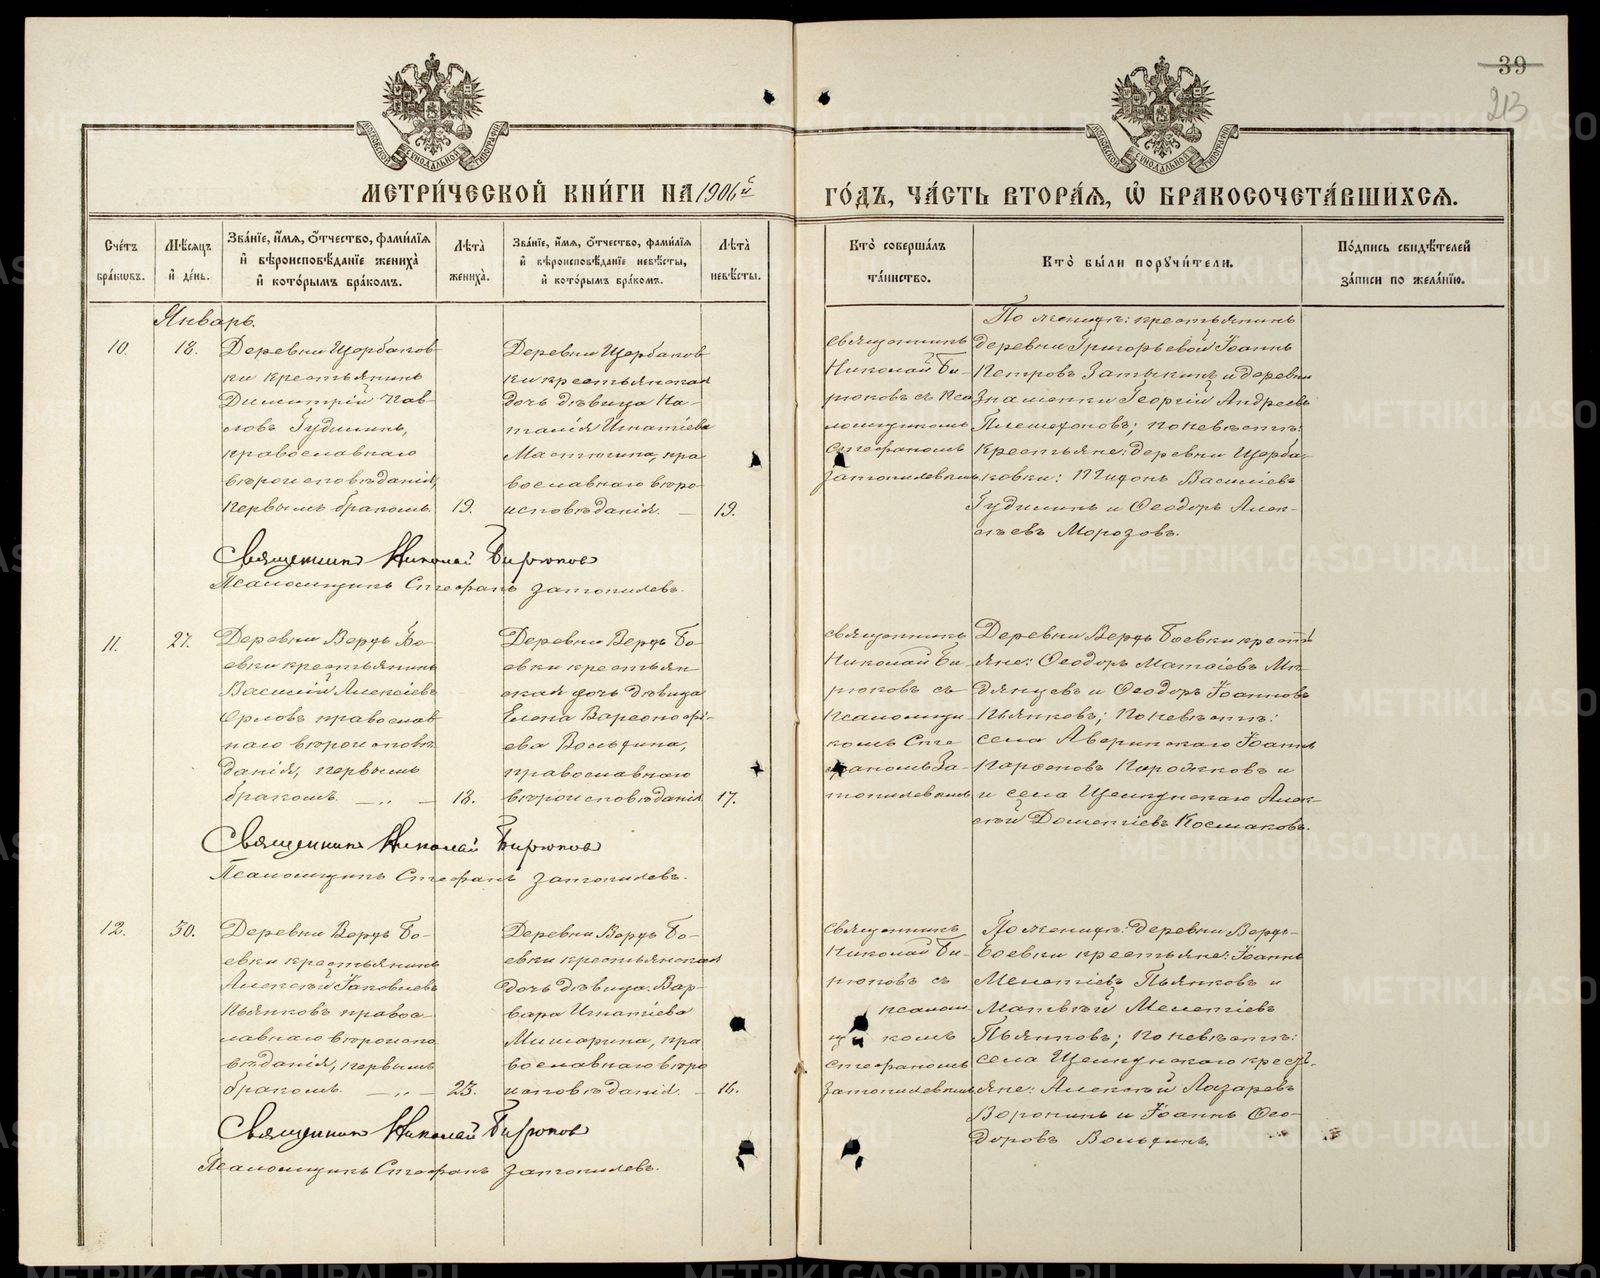 39
213
МОСКОВСКОЙ СѴНОДАЛЬНОЙ ТИПОГРАФІИ
МОСКОВСКОЙ СѴНОДАЛЬНОЙ ТИПОГРАФІИ
МЕТРИ́ЧЕСКОЙ КНИ́ГИ НА 1906й
ГО́ДЪ, ЧА́СТЬ ВТОРА́Я, Ѡ БРАКОСОЧЕТА́ВШИХСЯ.
Сче́тъ
бра́кѡвъ.
Мѣ́сяцъ
и҆ де́нь.
Зва́нїе, и҆́мя, ѻ҆́тчество, фами́лїя
и҆ вѣроисповѣ́данїе жениха̀
и҆ кото́рымъ бра́комъ.
Лѣта̀
жениха̀.
Зва́нїе, и҆́мя, ѻ҆́тчество, фами́лїя
и҆ вѣроисповѣ́данїе невѣ́сты,
и҆ кото́рымъ бра́комъ.
Лѣта̀
невѣ́сты.
Кто̀ соверша́лъ
та́инство.
Кто̀ бы́ли поручи́тели.
По́дпись свидѣ́телей
за́писи по жела́нїю.
Январь.
10.
18.
Деревни Щербаков-
ки крестьянинъ
Димитрій Пав-
ловъ Гудилинъ,
православнаго
вѣроисповѣданія,
первымъ бракомъ.
19.
Деревни Щербаков-
ки крестьянская
дочь дѣвица На-
талія Игнатіева
Мастюгина, пра
вославнаго вѣро
исповѣданія. —
19.
Священникъ
Николай Би-
рюковъ съ Пса
ломщикомъ
Стефаномъ
Затопляевымъ
По женихѣ: крестьянинъ
деревни Григорьевой Іоаннъ
Петровъ Затыкинъ и деревни
Знаменки Георгій Андреевъ
; по невѣстѣ:
Крестьяне: деревни Щерба-
ковки: Тифонъ Василіевъ
Гудилинъ и Ѳеодоръ Алек-
сѣевъ Морозовъ.
Священникъ Николай Бирюковъ
Псаломщикъ Стефанъ Затопляевъ.
11.
27.
Деревни Верхъ Бо-
евки крестьянинъ
Василій Алексіевъ
Орловъ православ
наго вѣроисповѣ
данія, первымъ
бракомъ. — „ —
18.
Деревни Верхъ Бо-
евки крестьян
ская дочь дѣвица
Елена Варѳоломѣ-
ева Вольхина,
православнаго
вѣроисповѣданія.
17.
Священникъ
Николай Би-
рюковъ съ
Псаломщи
комъ Сте
фаномъ За-
топляевымъ
Деревни Верхъ Боевки кресть
яне: Ѳеодоръ Матѳіевъ
и Ѳеодоръ Іоанновъ
Пьянковъ; по невѣстѣ:
села Аверинскаго Іоаннъ
Парѳеновъ и
и села Щелкунскаго Алек-
сѣй Дометіевъ Космаковъ.
Священникъ Николай Бирюковъ
Псаломщикъ Стефанъ Затопляевъ.
12.
30.
Деревни Верхъ Бо-
евки крестьянинъ
Алексѣй Іаковлевъ
Пьянковъ правос-
лавнаго вѣроиспо
вѣданія, первымъ
бракомъ. — „ —
23.
Деревни Верхъ Бо-
евки крестьянская
дочь дѣвица Вар-
вара Игнатіева
Мишарина, пра
вославнаго вѣро
исповѣданія. —
16.
Священникъ
Николай Би-
рюковъ съ
псалом
щи комъ
Стефаномъ
Затопляевымъ
По женихѣ: деревни Верхъ-
Боевки крестьяне: Іоаннъ
Мелетіевъ Пьянковъ и
Матвѣй Мелетіевъ
Пьянковъ; по невѣстѣ:
села Щелкунскаго кресть-
яне: Алексѣй Лазаревъ
Воронинъ и Іоаннъ Ѳео-
доровъ Вольхинъ.
Священникъ Николай Бирюковъ
Псаломщикъ Стефанъ Затопляевъ.
METRIKI.GASO-URAL.RU